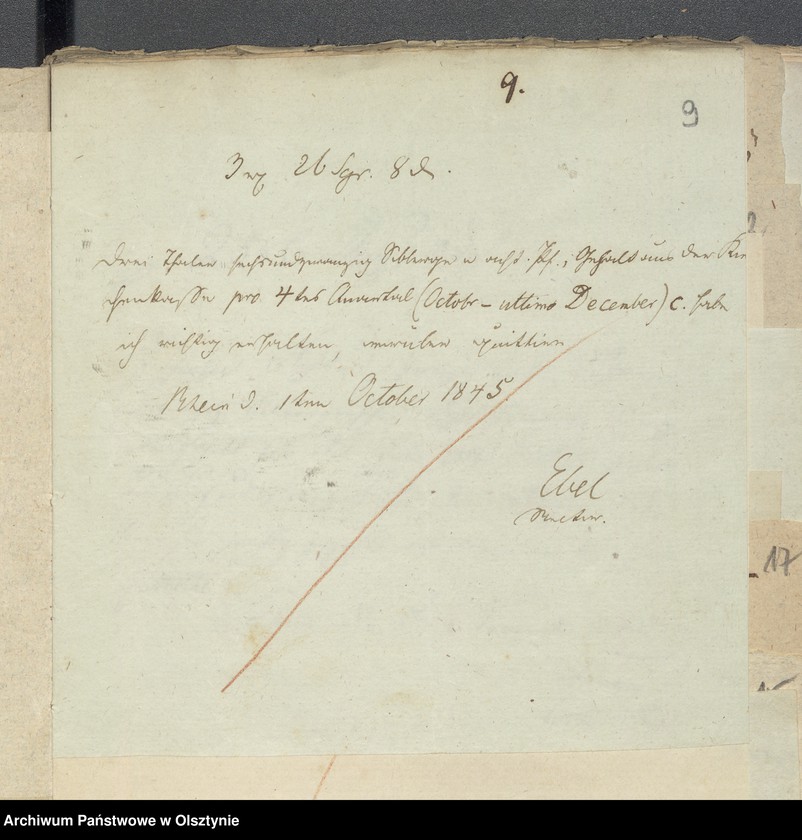 9.
9
3 rtl 26 Sgr. 8 d.
Drei Thaler sechsundzwanzig Silbergr u acht Pf., Gehalt aus der Kir
chenkasse pro 4tes Quartal (Octobr – ultimo December) c. habe
ich richtig erhalten, worüber quittire
Rhein d. 1ten October 1845
Ebel
Rector.
17
Archiwum Państwowe w Olsztynie